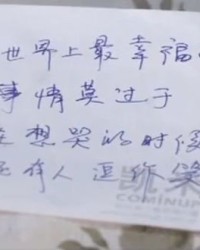 世界上最幸福
事情莫过于
在想哭的时候
还有人逗你笑
COMINUP